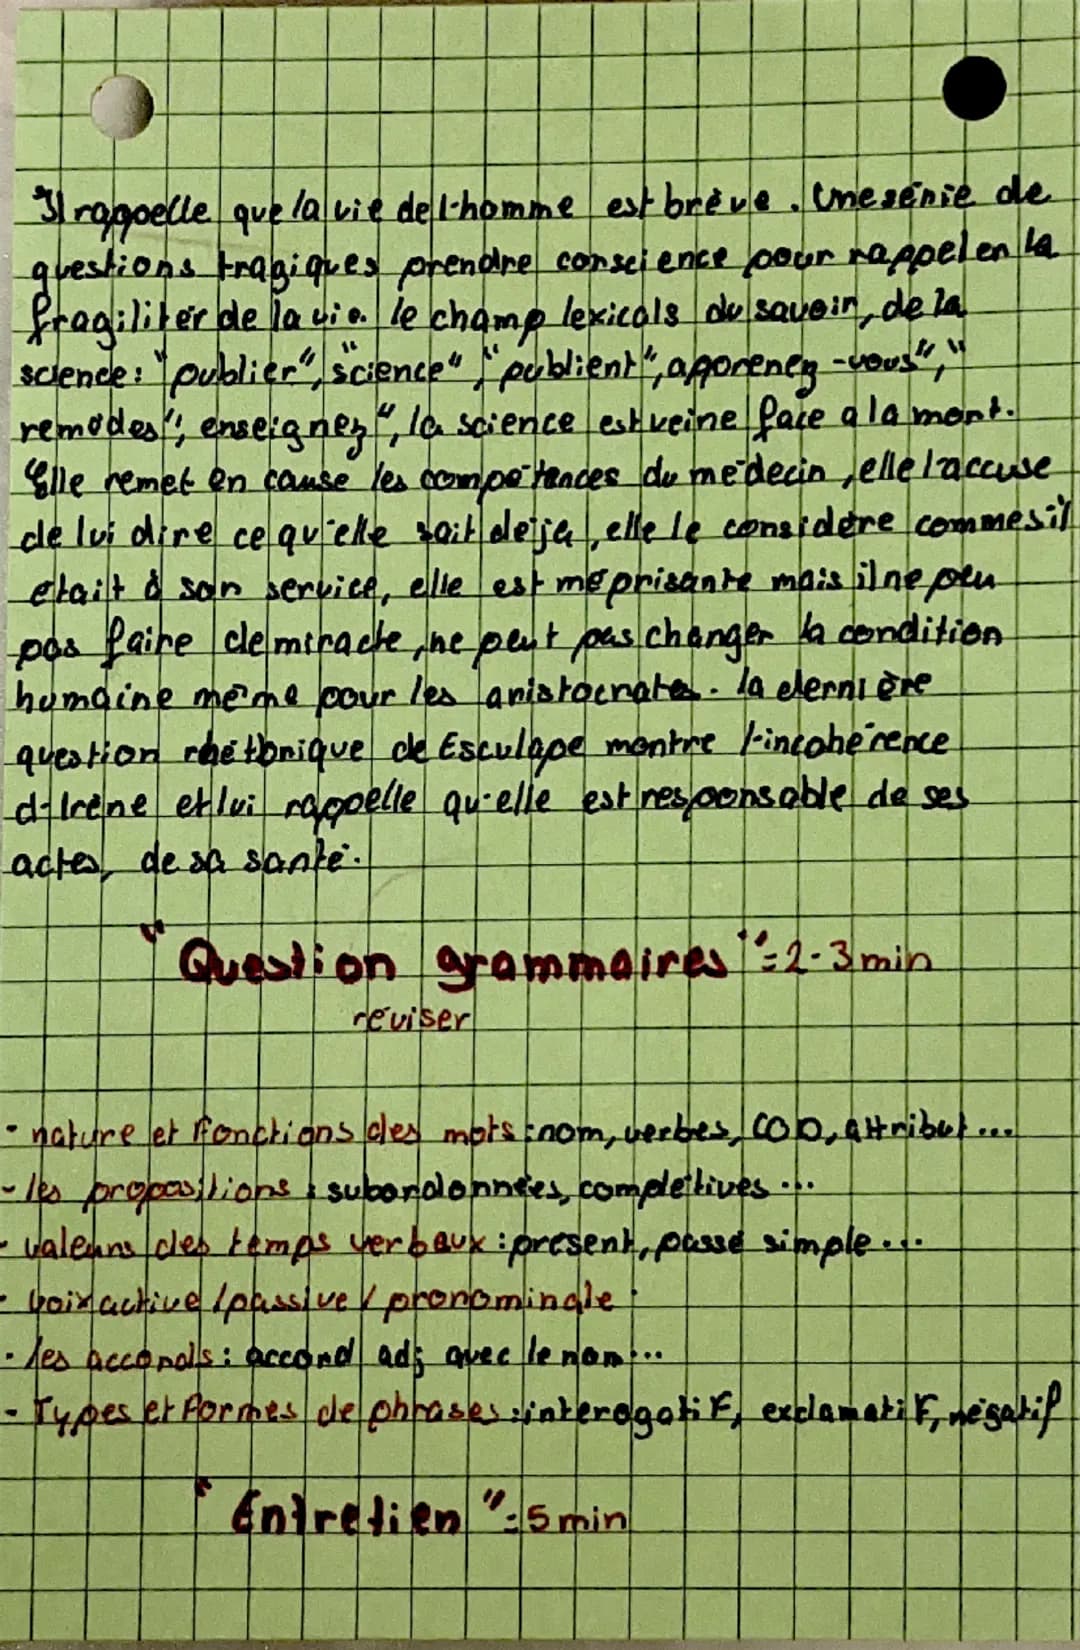 Il rappelle que la vie de l'homme est brève. Une série de
questions tragiques prendre conscience pour rappeler la
fragiliter de la vie. le champ lexicals du savoir, de la
science: "publier", "science", "publient", apprenez-vous", "
remèdes", enseignez", la science est veine face a la mort.
Elle remet en cause les compétences du médecin, elle l'accuse
de lui dire ce qu'elle sait déjà, elle le considère comme sil
était à son service, elle est méprisante mais il ne peu
pas faire de miracle, ne peut pas changer la condition
humaine même pour les aristocrates. la dernière
question rhétorique de Esculape montre l'incohérence
d'Irène et lui rappelle qu'elle est responsable de ses
actes, de sa santé.
"Question grammaires" = 2-3 min
réviser
- nature et fonctions des mots: nom, verbes, COD, attribut...
- les propositions: subordonnées, complétives...
- valeurs des temps verbaux: présent, passé simple...
- voix active / passive / pronominale
- les accords: accord adj avec le nom...
- Types et formes de phrases: interogatif, exclamatif, négatif
"Entretien" = 5 min